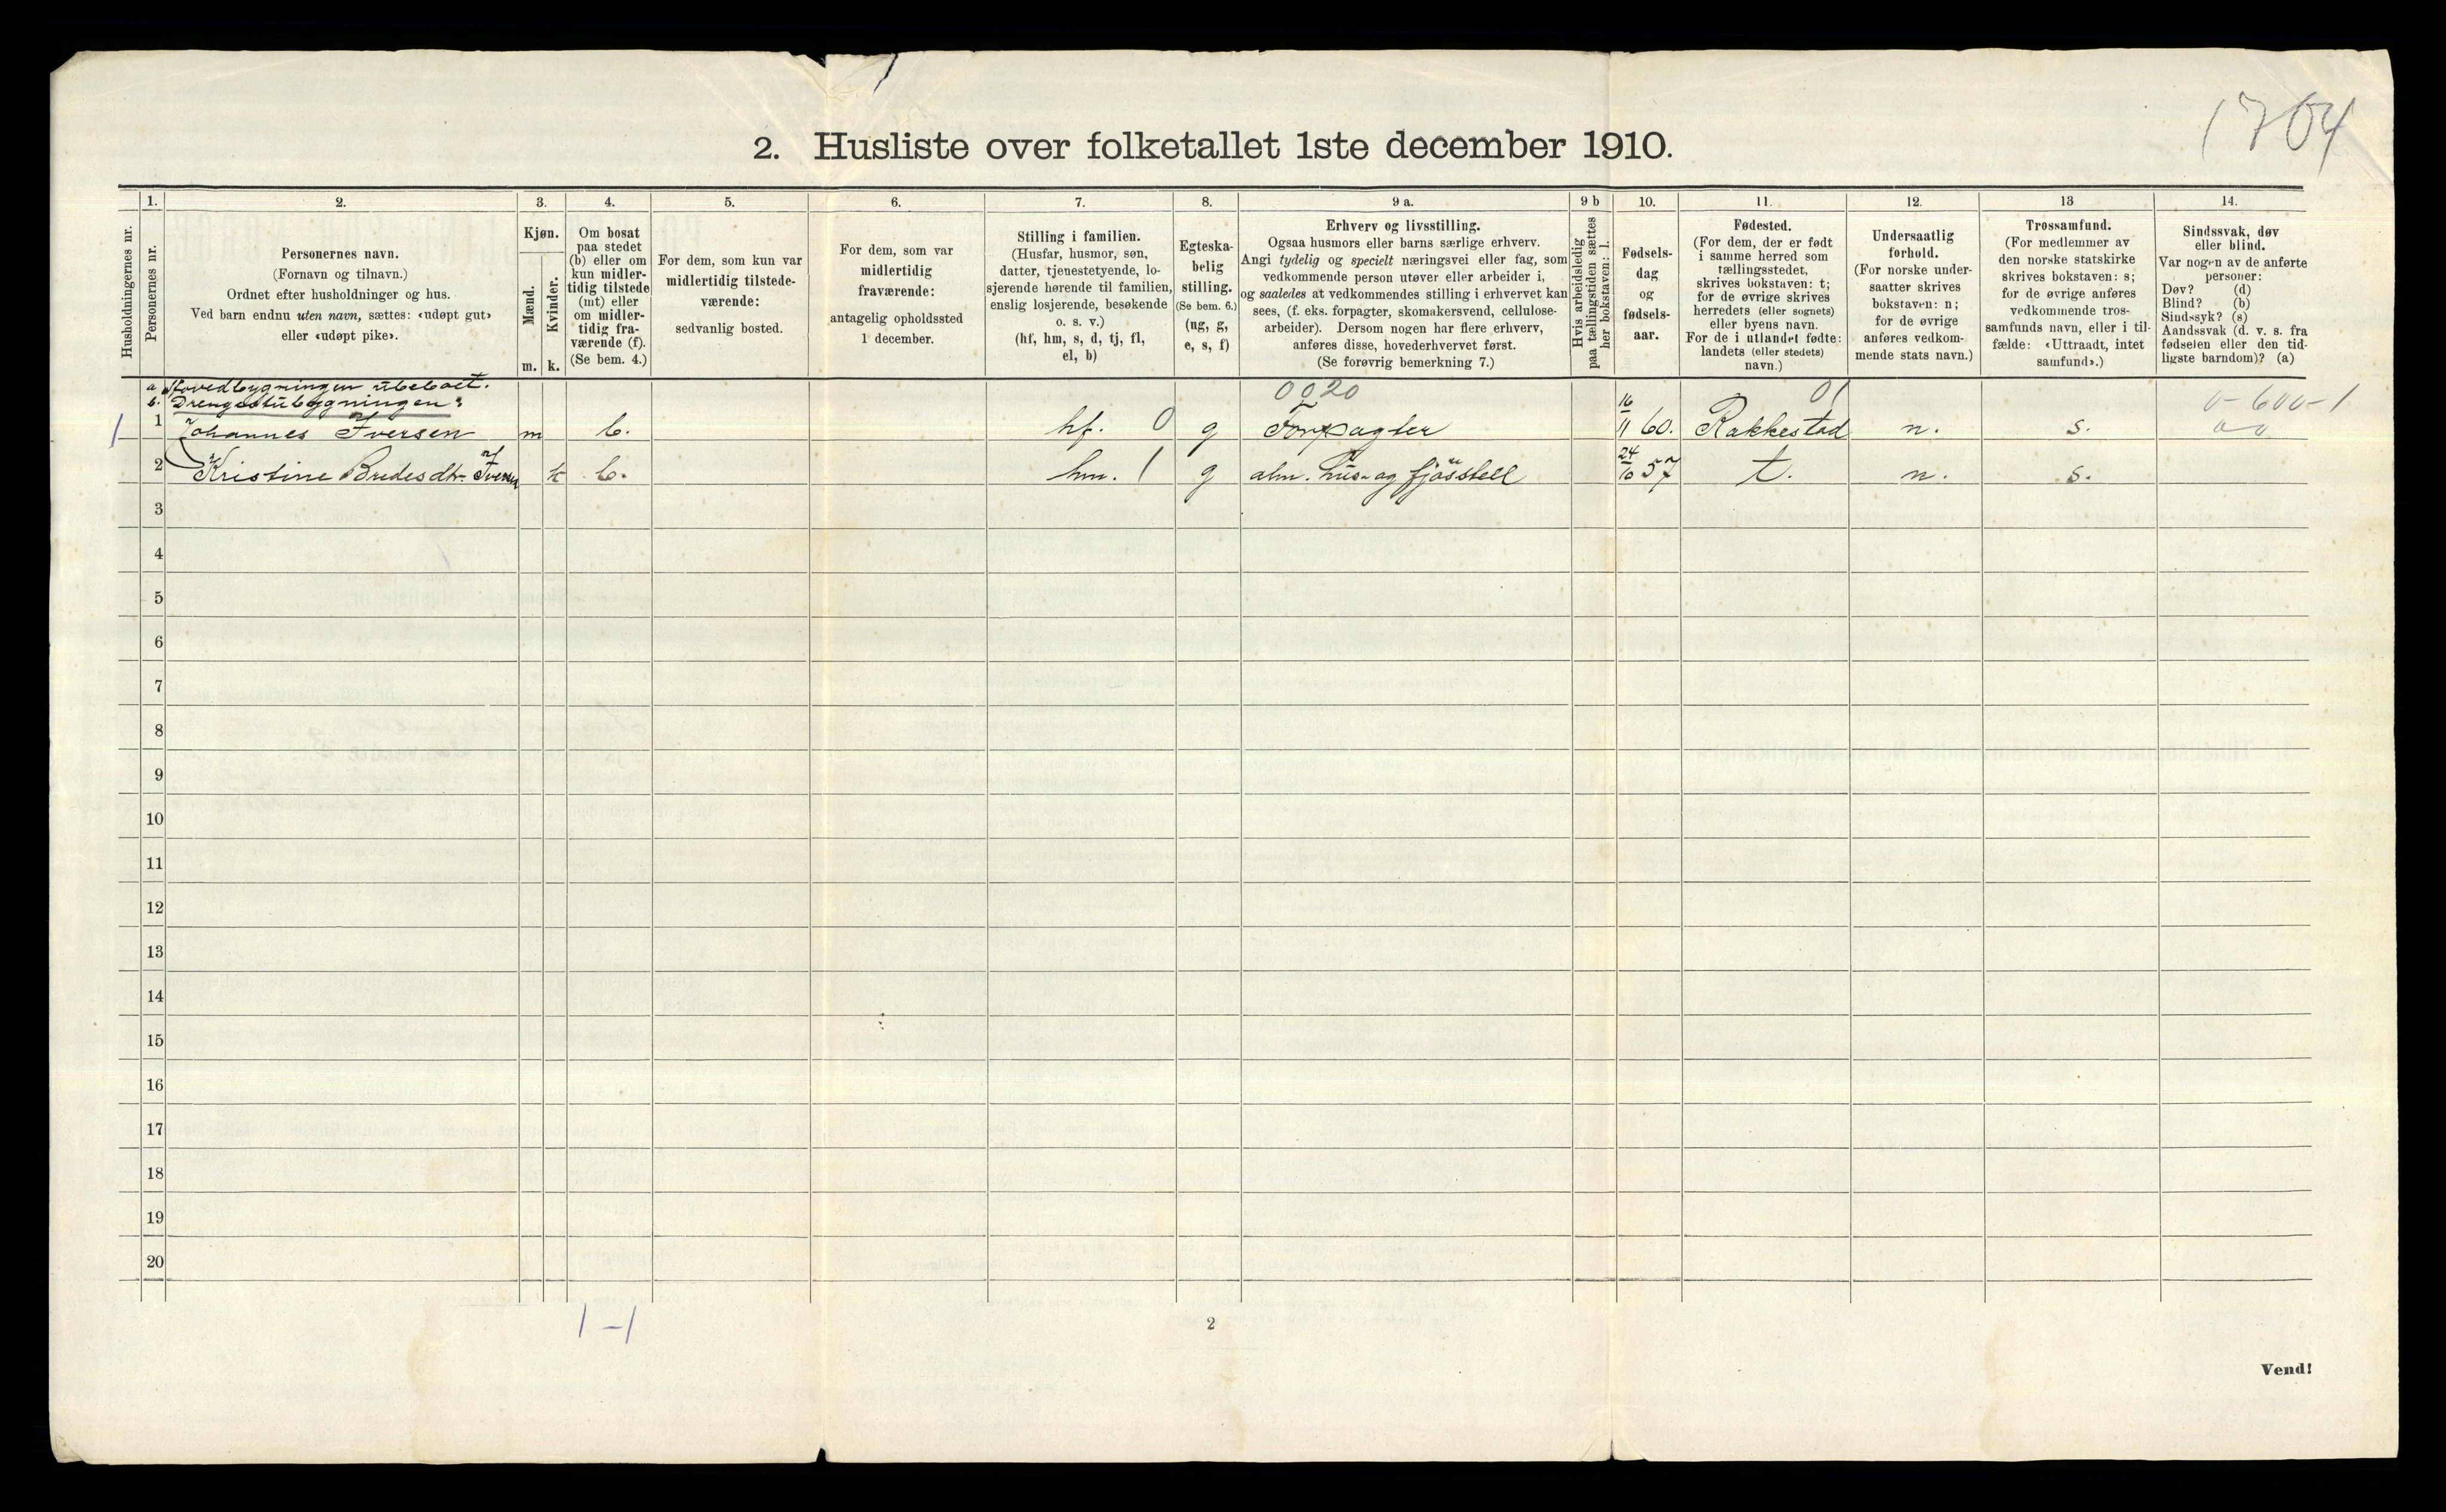 1704
2. Husliste over folketallet 1ste december 1910.
Husholdningernes nr.
1.
Personernes nr.
2.
Personernes navn.
(Fornavn og tilnavn.)
Ordnet efter husholdninger og hus.
Ved barn endnu uten navn, sættes: «udøpt gut»
eller «udøpt pike».
3.
Kjøn.
Mænd.
Kvinder.
m. k.
4.
Om bosat
paa stedet
(b) eller om
kun midler-
tidig tilstede
(mt) eller
om midler-
tidig fra-
værende (f).
(Se bem. 4.)
5.
For dem, som kun var
midlertidig tilstede-
værende:
sedvanlig bosted.
6.
For dem, som var
midlertidig
fraværende:
antagelig opholdssted
1 december.
7.
Stilling i familien.
(Husfar, husmor, søn,
datter, tjenestetyende, lo-
sjerende hørende til familien,
enslig losjerende, besøkende
o. s. v.)
(hf, hm, s, d, tj, fl,
el, b)
8.
Egteska-
belig
stilling.
(Se bem. 6.)
(ug, g,
e, s, f)
9 a.
Erhverv og livsstilling.
Ogsaa husmors eller barns særlige erhverv.
Angi tydelig og specielt næringsvei eller fag, som
vedkommende person utøver eller arbeider i,
og saaledes at vedkommendes stilling i erhvervet kan
sees, (f. eks. forpagter, skomakersvend, cellulose-
arbeider). Dersom nogen har flere erhverv,
anføres disse, hovederhvervet først.
(Se forøvrig bemerkning 7.)
9 b
Hvis arbeidsledig
paa tællingstiden sættes
her bokstaven: l.
10.
Fødsels-
dag
og
fødsels-
aar.
11.
Fødested.
(For dem, der er født
i samme herred som
tællingsstedet,
skrives bokstaven: t;
for de øvrige skrives
herredets (eller sognets)
eller byens navn.
For de i utlandet fødte:
landets (eller stedets)
navn.)
12.
Undersaatlig
forhold.
(For norske under-
saatter skrives
bokstaven: n;
for de øvrige
anføres vedkom-
mende stats navn.)
13
Trossamfund.
(For medlemmer av
den norske statskirke
skrives bokstaven: s;
for de øvrige anføres
vedkommende tros-
samfunds navn, eller i til-
fælde: «Uttraadt, intet
samfund».)
14.
Sindssvak, døv
eller blind.
Var nogen av de anførte
personer:
Døv? (d)
Blind? (b)
Sindssyk? (s)
Aandssvak (d. v. s. fra
fødselen eller den tid-
ligste barndom)? (a)
a Hovedbygningen ubeboet.
b. Drengestubygningen: 0020 01 0-600-1
1 1 Johannes Iversen m b. hf. 0 g Forpagter 16/11 60. Rakkestad n. s.
2 Kristine Budesdtr. Iversen k b. hm. 1 g alm. hus- og fjøsstell 24/10 57 t. n. s.
3
4
5
6
7
8
9
10
11
12
13
14
15
16
17
18
19
20
1-1
2
Vend!